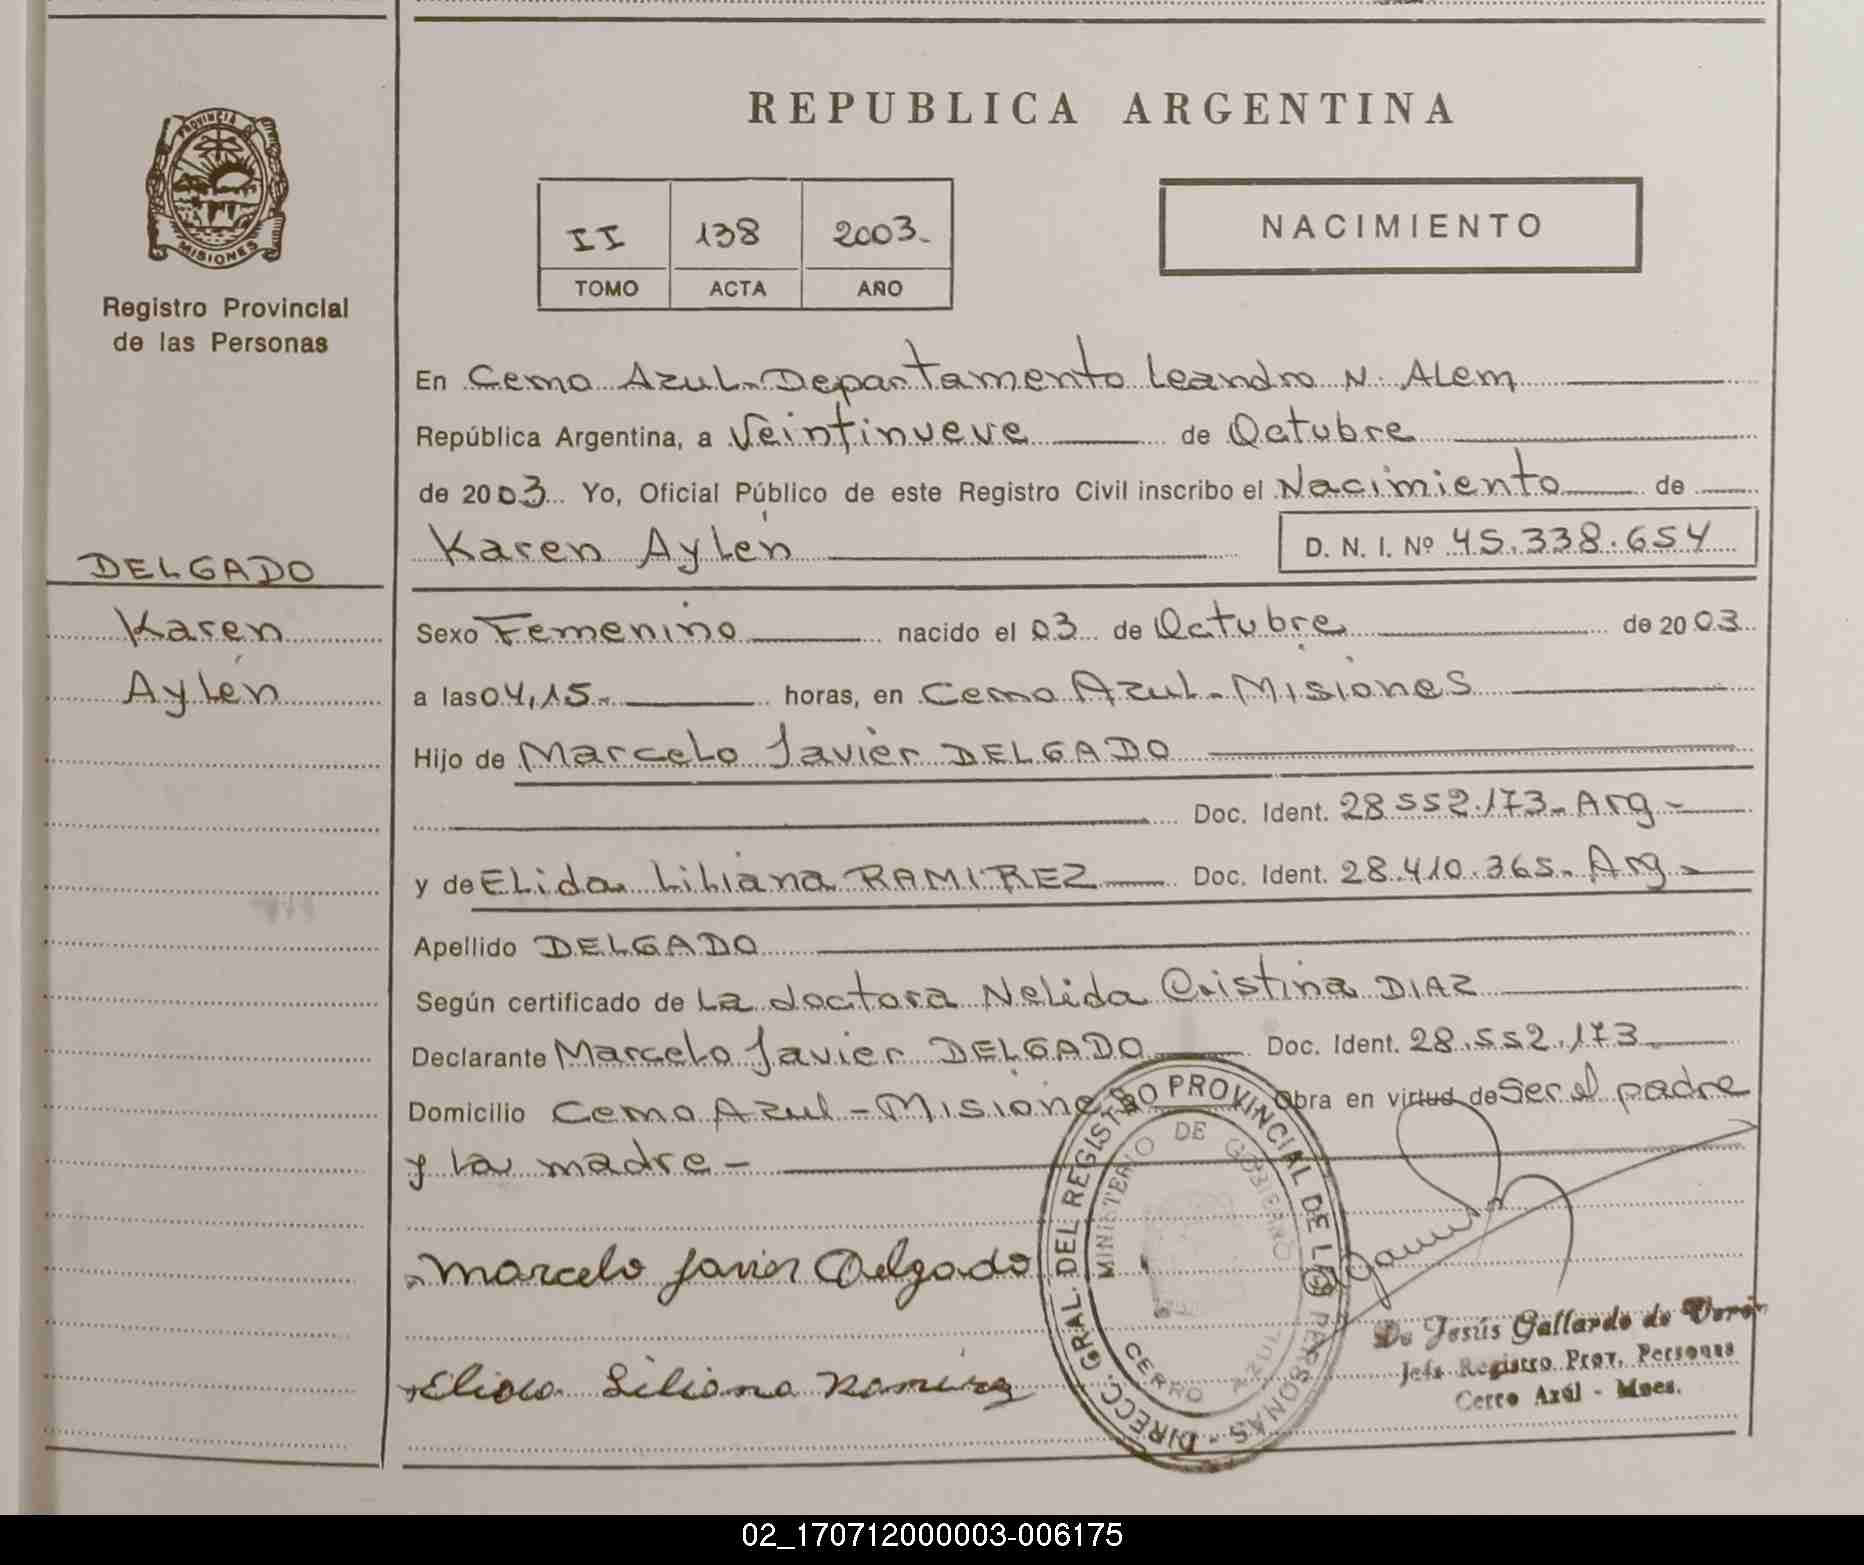 PROVINCIA DE
MISIONES
Registro Provincial
de las Personas
DELGADO
Karen
Aylén
REPUBLICA ARGENTINA
II 138 2003.-
TOMO ACTA AÑO
NACIMIENTO
En Cerro Azul-Departamento Leandro N. Alem
República Argentina, a Veintinueve de Octubre
de 2003 Yo, Oficial Público de este Registro Civil inscribo el Nacimiento de
Karen Aylén D. N. I. Nº 45.338.654
Sexo Femenino nacido el 03 de Octubre de 2003
a las 04,15.- horas, en Cerro Azul-Misiones
Hijo de Marcelo Javier DELGADO
Doc. Ident. 28.552.173- Arg-
y de Elida Liliana RAMIREZ Doc. Ident. 28.410.365- Arg-
Apellido DELGADO
Según certificado de La doctora Nelida Cristina DIAZ
Declarante Marcelo Javier DELGADO Doc. Ident. 28.552.173
Domicilio Cerro Azul-Misiones Obra en virtud de Ser el padre
y la madre-
Marcelo Javier Delgado
Elida Liliana Ramirez
DIRECC. GRAL. DEL REGISTRO PROVINCIAL DE LAS PERSONAS -
MINISTERIO DE GOBIERNO
CERRO AZUL
De Jesús Gallardo de
Jefe Registro Prov. Personas
Cerro Azúl - Mnes.
02_170712000003-006175